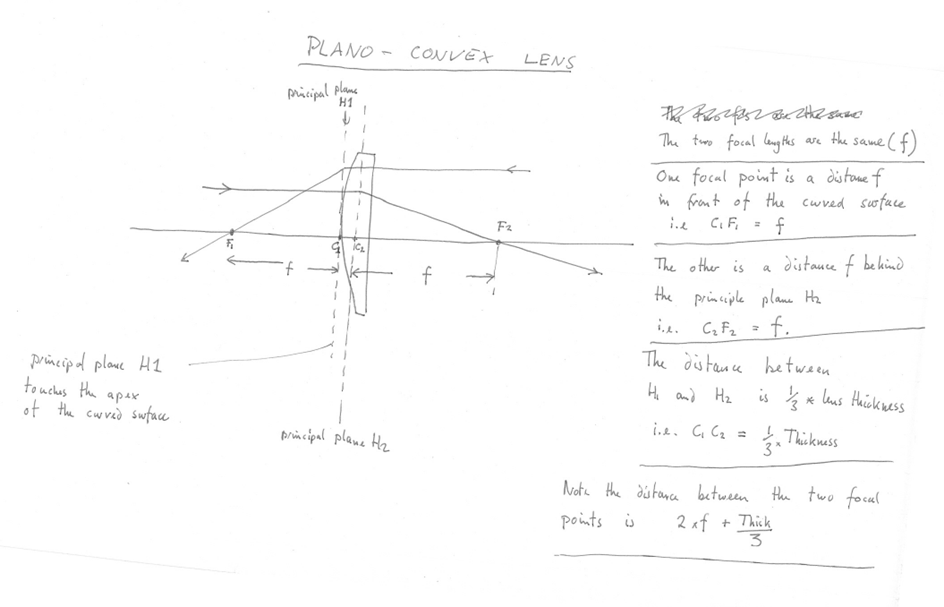 PLANO - CONVEX LENS
principal plane
H1
F1
C1
C2
F2
f
f
principal plane H1
touches the apex
of the curved surface
principal plane H2
The two focal lengths are the same (f)
One focal point is a distance f
in front of the curved surface
i.e C1F1 = f
The other is a distance f behind
the principle plane H2
i.e. C2F2 = f.
The distance between
H1 and H2 is 1/3 * lens thickness
i.e. C1C2 = 1/3 x Thickness
Note the distance between the two focal
points is 2 x f + Thick/3